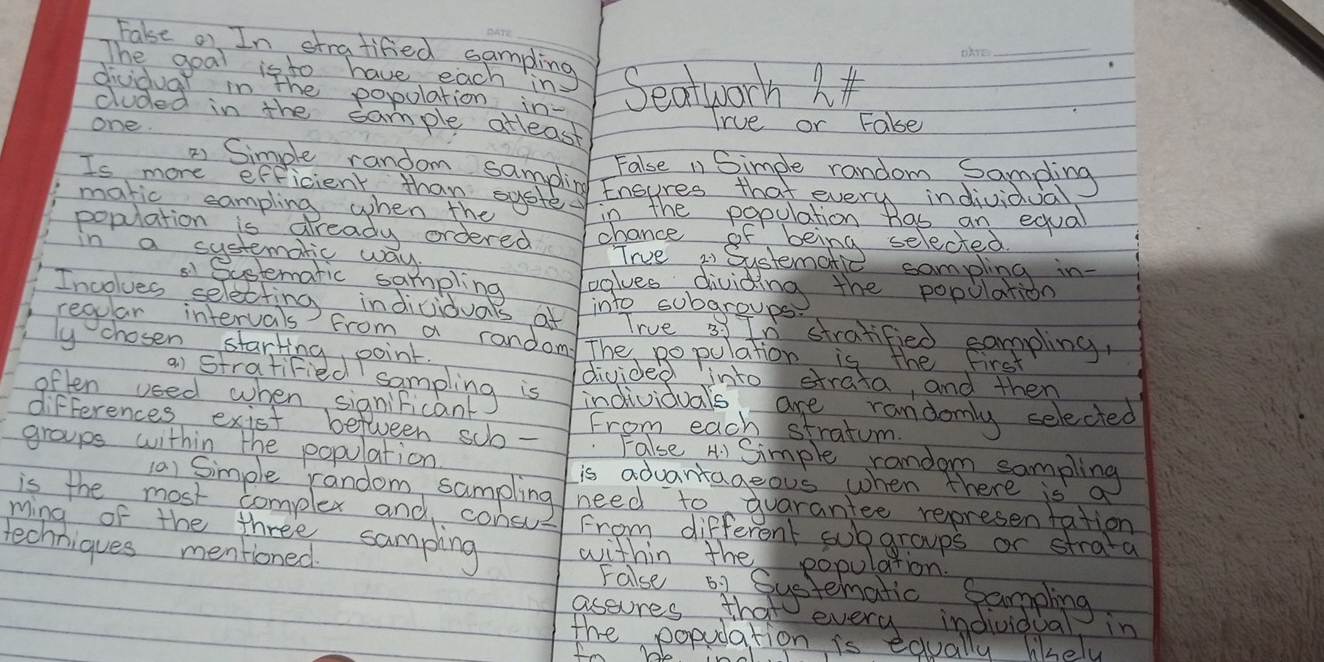 DATE
False 6) In stratified sampling
The goal is to have each in
dividual in the population in-
cluded in the sample atleast
one.
7) Simple random sampling
Is more efficient than syste-
matic sampling when the
population is already ordered
in a systematic way.
8) Systematic sampling
Involves selecting individuals at
regular intervals from a random
ly chosen starting point.
9) Stratified sampling is
often used when significant
differences exist between sub-
groups within the population.
10) Simple random sampling
is the most complex and consu-
ming of the three samping
techniques mentioned.
DATE
Seatwork 2#
True or False
False 1) Simple random Sampling
Ensures that every individual
in the population has an equal
chance of being selected.
True 2.) Systematic sampling in-
volves dividing the population
into subgroups.
True 3.) In stratified sampling,
The population is the first
divided into strata, and then
individuals are randomly selected
From each stratum.
False 4.) Simple random sampling
is advantageous when there is a
need to guarantee representation
From different subgroups or strata
within the population.
False 5.) Systematic Sampling
aseures that every individual in
the population is equally likely
to be